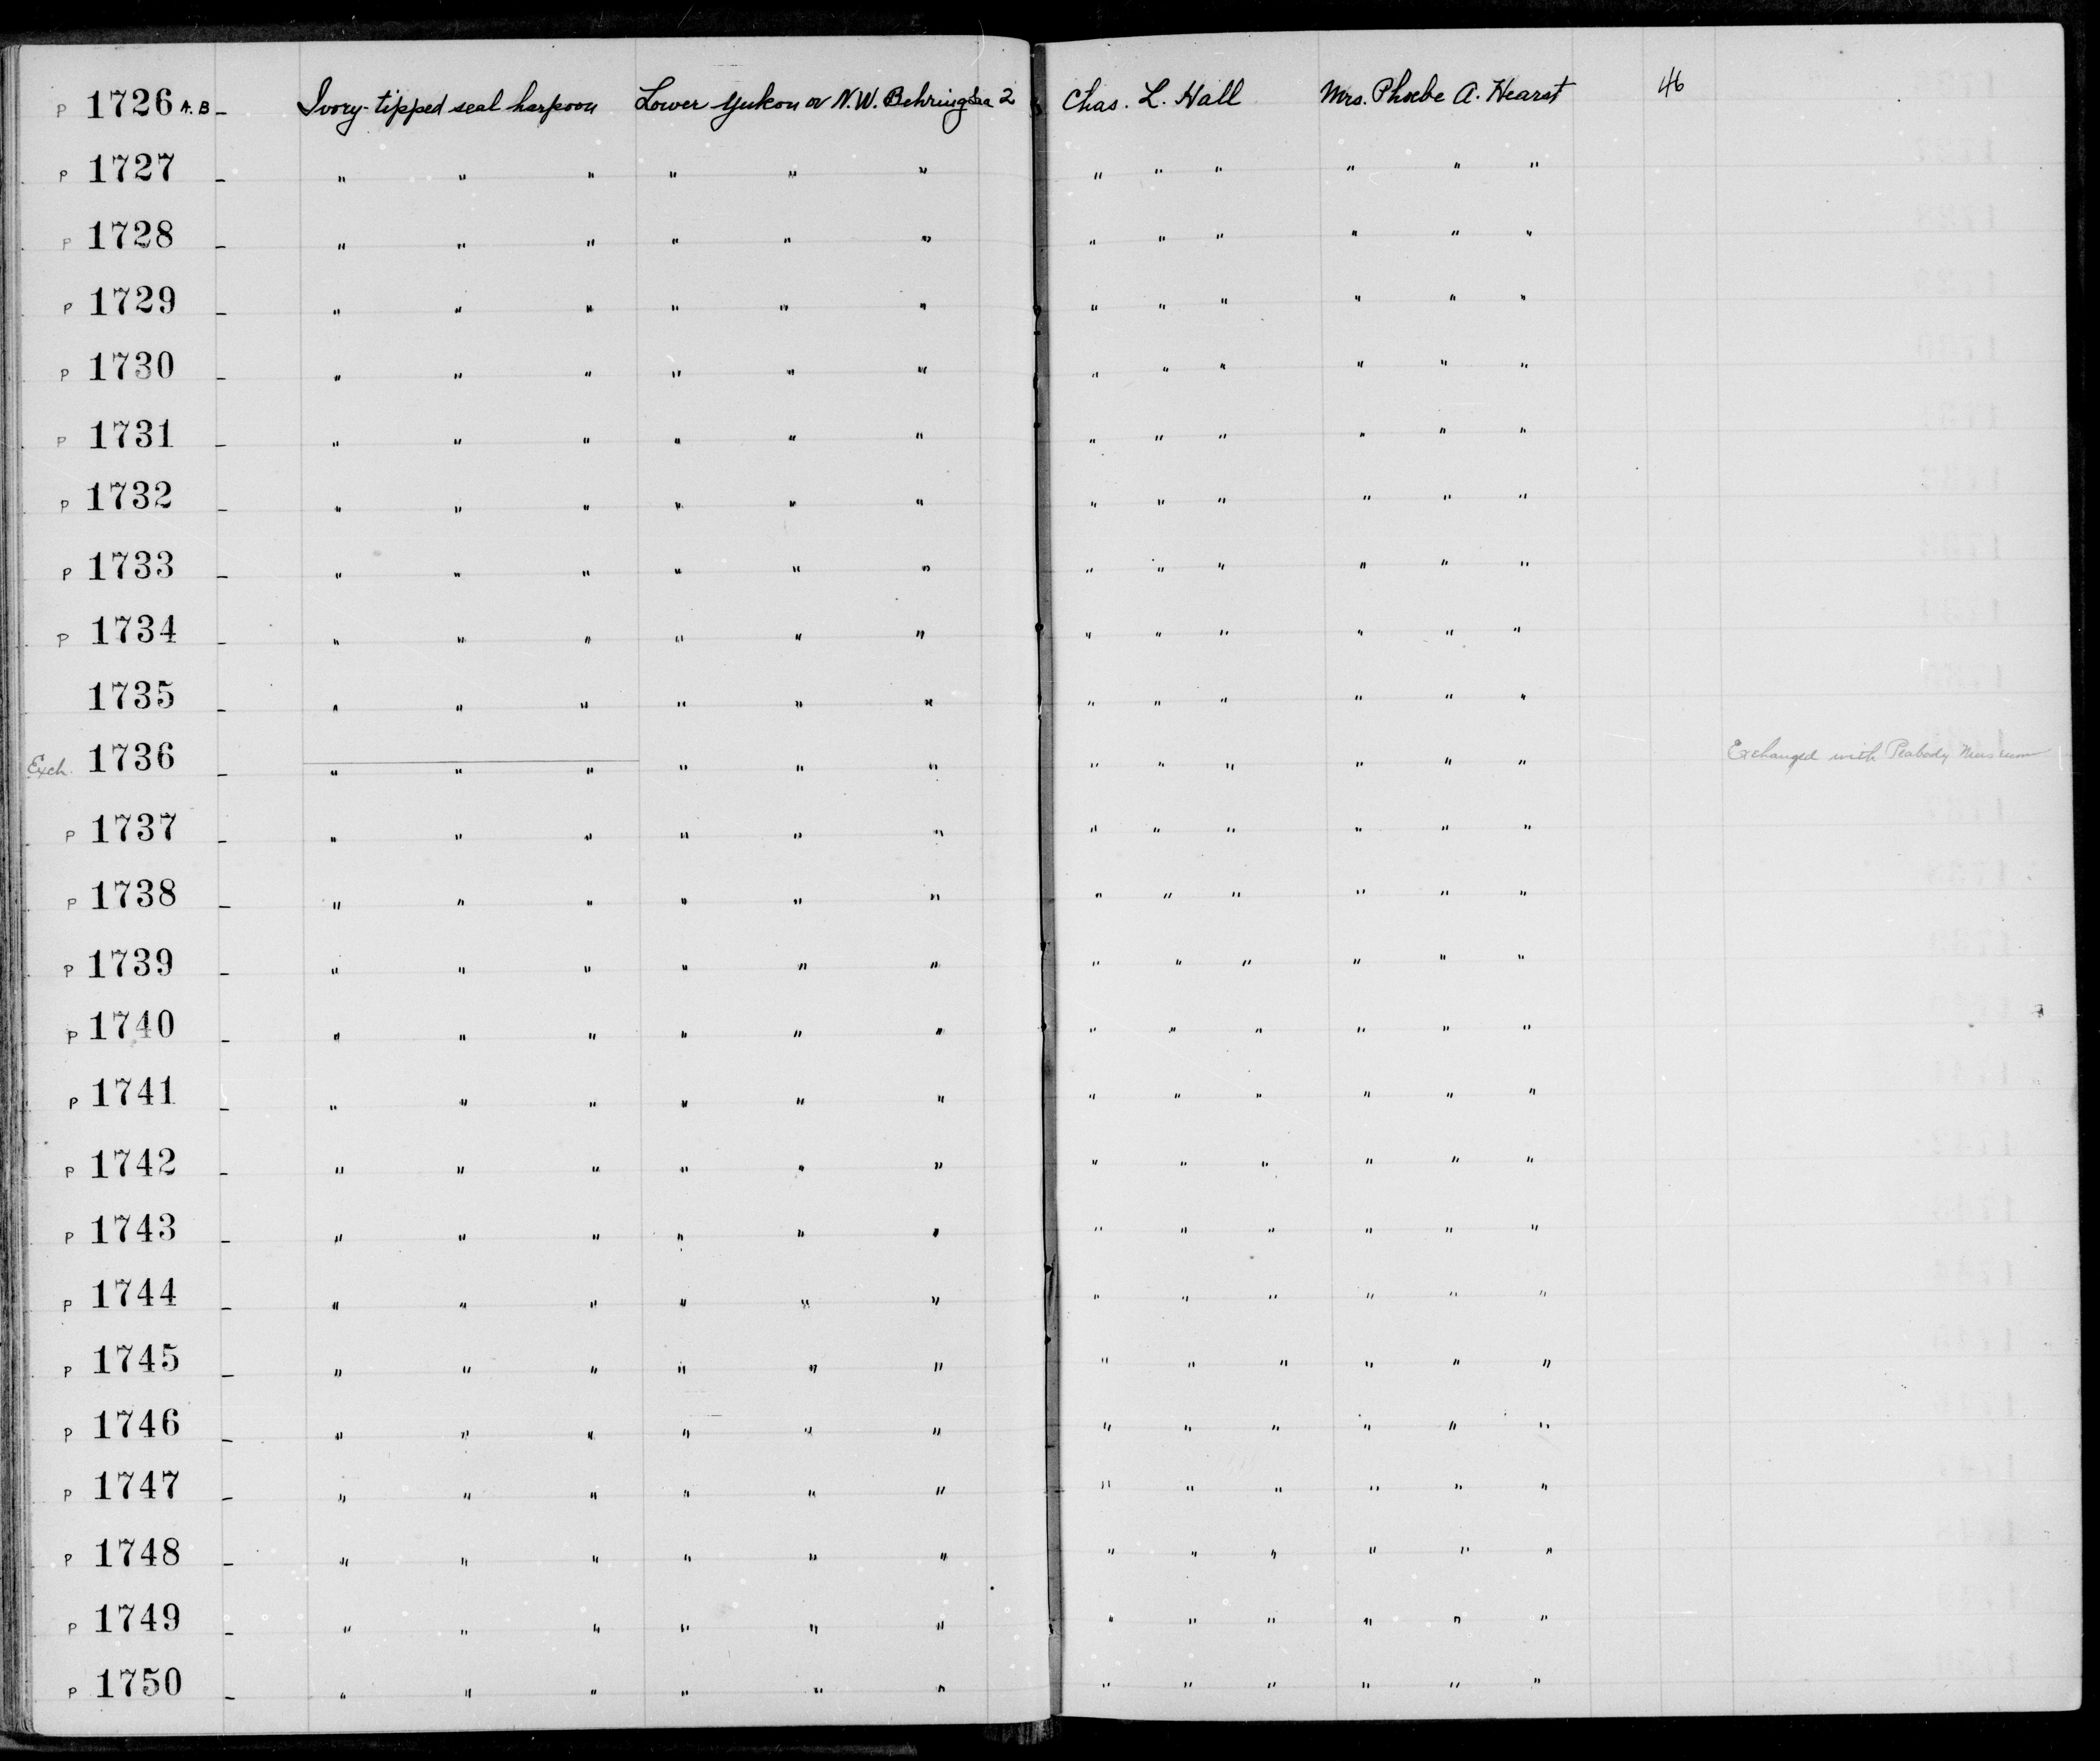 P 1726 A.B – Ivory-tipped seal harpoon Lower Yukon or N.W. Behring Sea 2 Chas. L. Hall Mrs. Phoebe A. Hearst 46
P 1727 – " " " " " " " " " " " "
P 1728 – " " " " " " " " " " " "
P 1729 – " " " " " " " " " " " "
P 1730 – " " " " " " " " " " " "
P 1731 – " " " " " " " " " " " "
P 1732 – " " " " " " " " " " " "
P 1733 – " " " " " " " " " " " "
P 1734 – " " " " " " " " " " " "
1735 – " " " " " " " " " " " "
Exch. 1736 – " " " " " " " " " " " " Exchanged with Peabody Museum
P 1737 – " " " " " " " " " " " "
P 1738 – " " " " " " " " " " " "
P 1739 – " " " " " " " " " " " "
P 1740 – " " " " " " " " " " " "
P 1741 – " " " " " " " " " " " "
P 1742 – " " " " " " " " " " " "
P 1743 – " " " " " " " " " " " "
P 1744 – " " " " " " " " " " " "
P 1745 – " " " " " " " " " " " "
P 1746 – " " " " " " " " " " " "
P 1747 – " " " " " " " " " " " "
P 1748 – " " " " " " " " " " " "
P 1749 – " " " " " " " " " " " "
P 1750 – " " " " " " " " " " " "